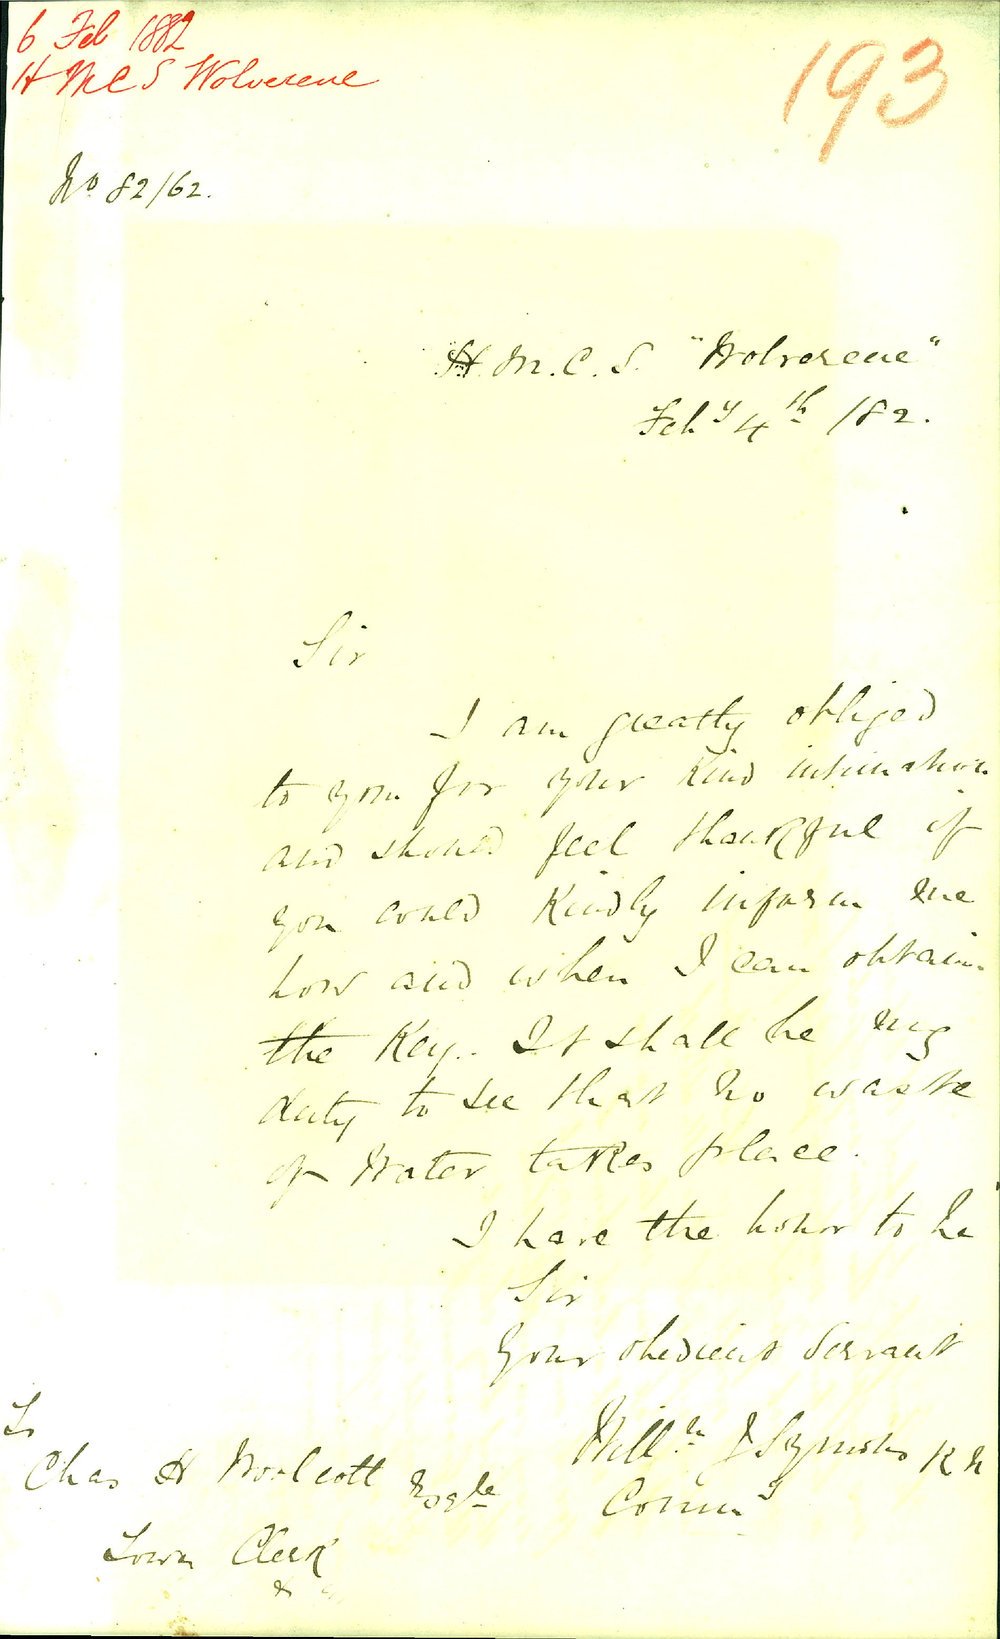 6 Feb 1882
H M C S Wolverene
193
No 82/62.
H. M. C. S. "Wolverene"
Feby 4th /82.
Sir
I am greatly obliged
to you for your kind intimation
and should feel thankful if
you could Kindly inform me
how and when I can obtain
the Key. It shall be my
duty to see that no waste
of Water takes place.
I have the honor to be
Sir
Your obedient Servant
Willm J Symonds R N
Commg
To
Chas H Woolcott Esqre
Town Clerk